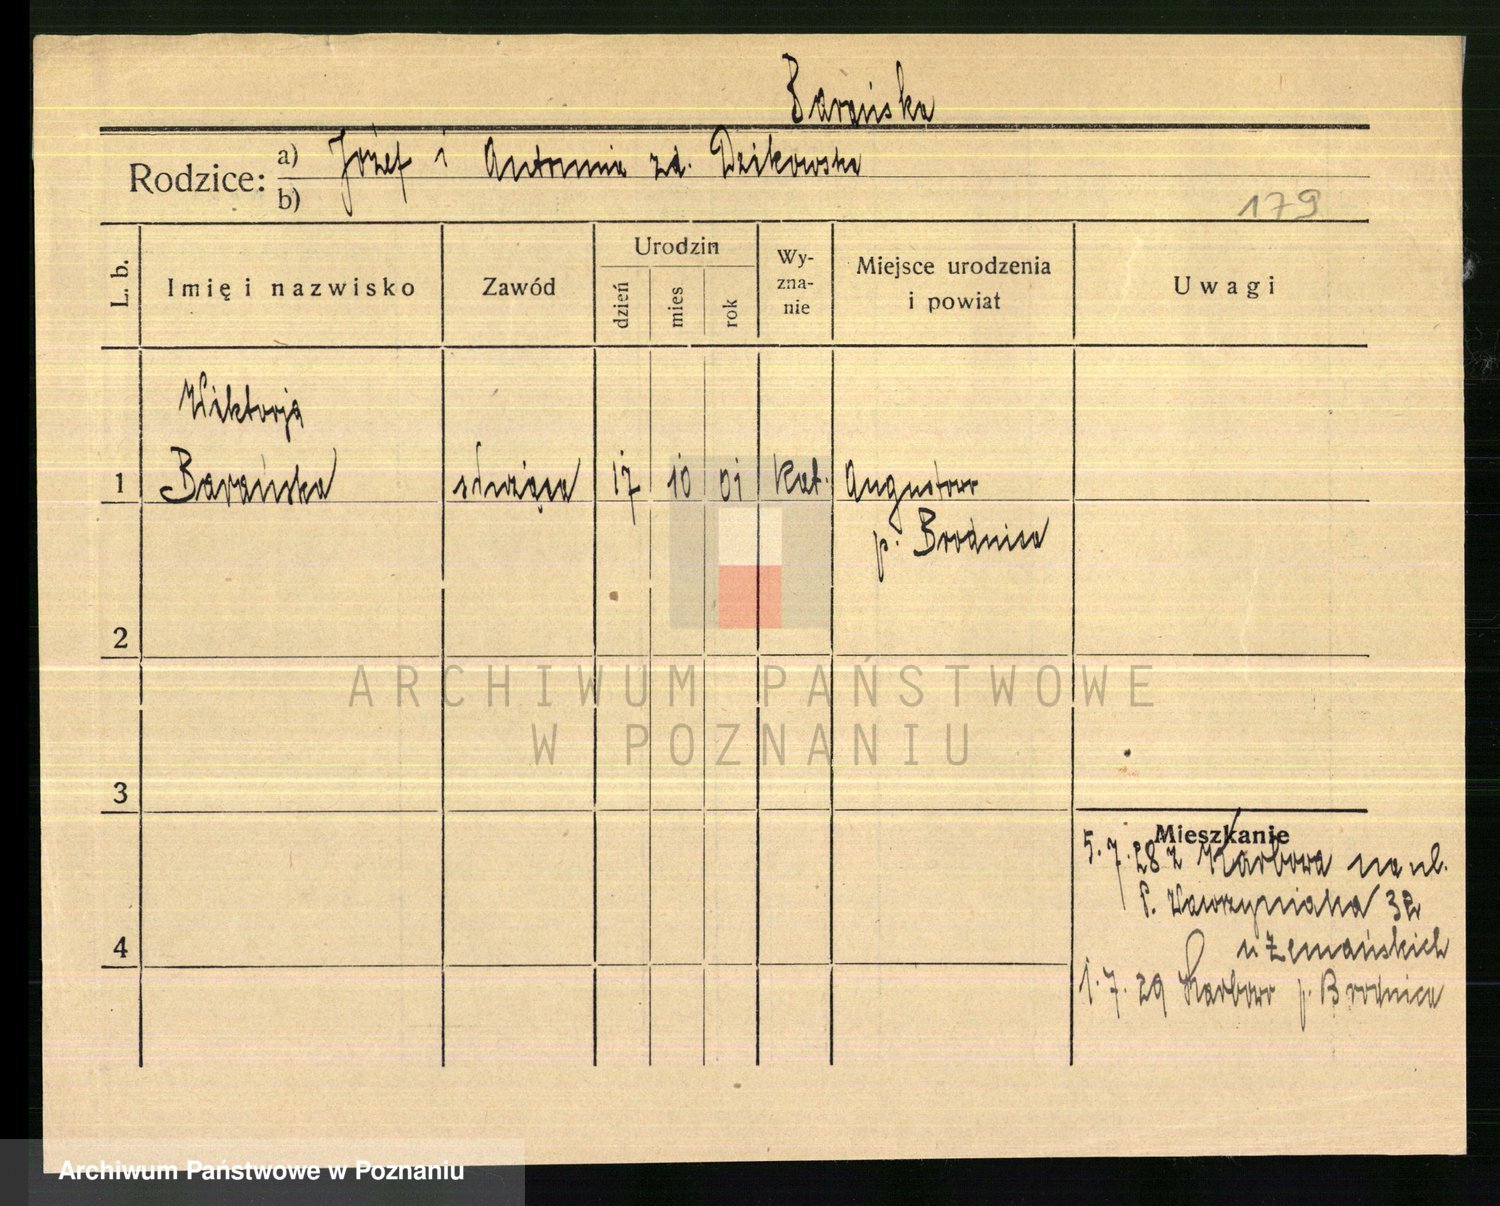 Barańska
Rodzice: a) Józef i Antonina zd. Dzikowska
b)
179
L. b.
Imię i nazwisko
Zawód
Urodzin
dzień
mies
rok
Wy-
zna-
nie
Miejsce urodzenia
i powiat
Uwagi
Wiktorja
1 Barańska służąca 17 10 01 kat. Augustowo
p. Brodnica
2
3
4
Mieszkanie
5.7.28 z Karbowa na ul.
P. Wawrzyniaka 32
u Zemańskich
1.7.29 Karbowo p. Brodnica
ARCHIWUM PAŃSTWOWE
W POZNANIU
Archiwum Państwowe w Poznaniu